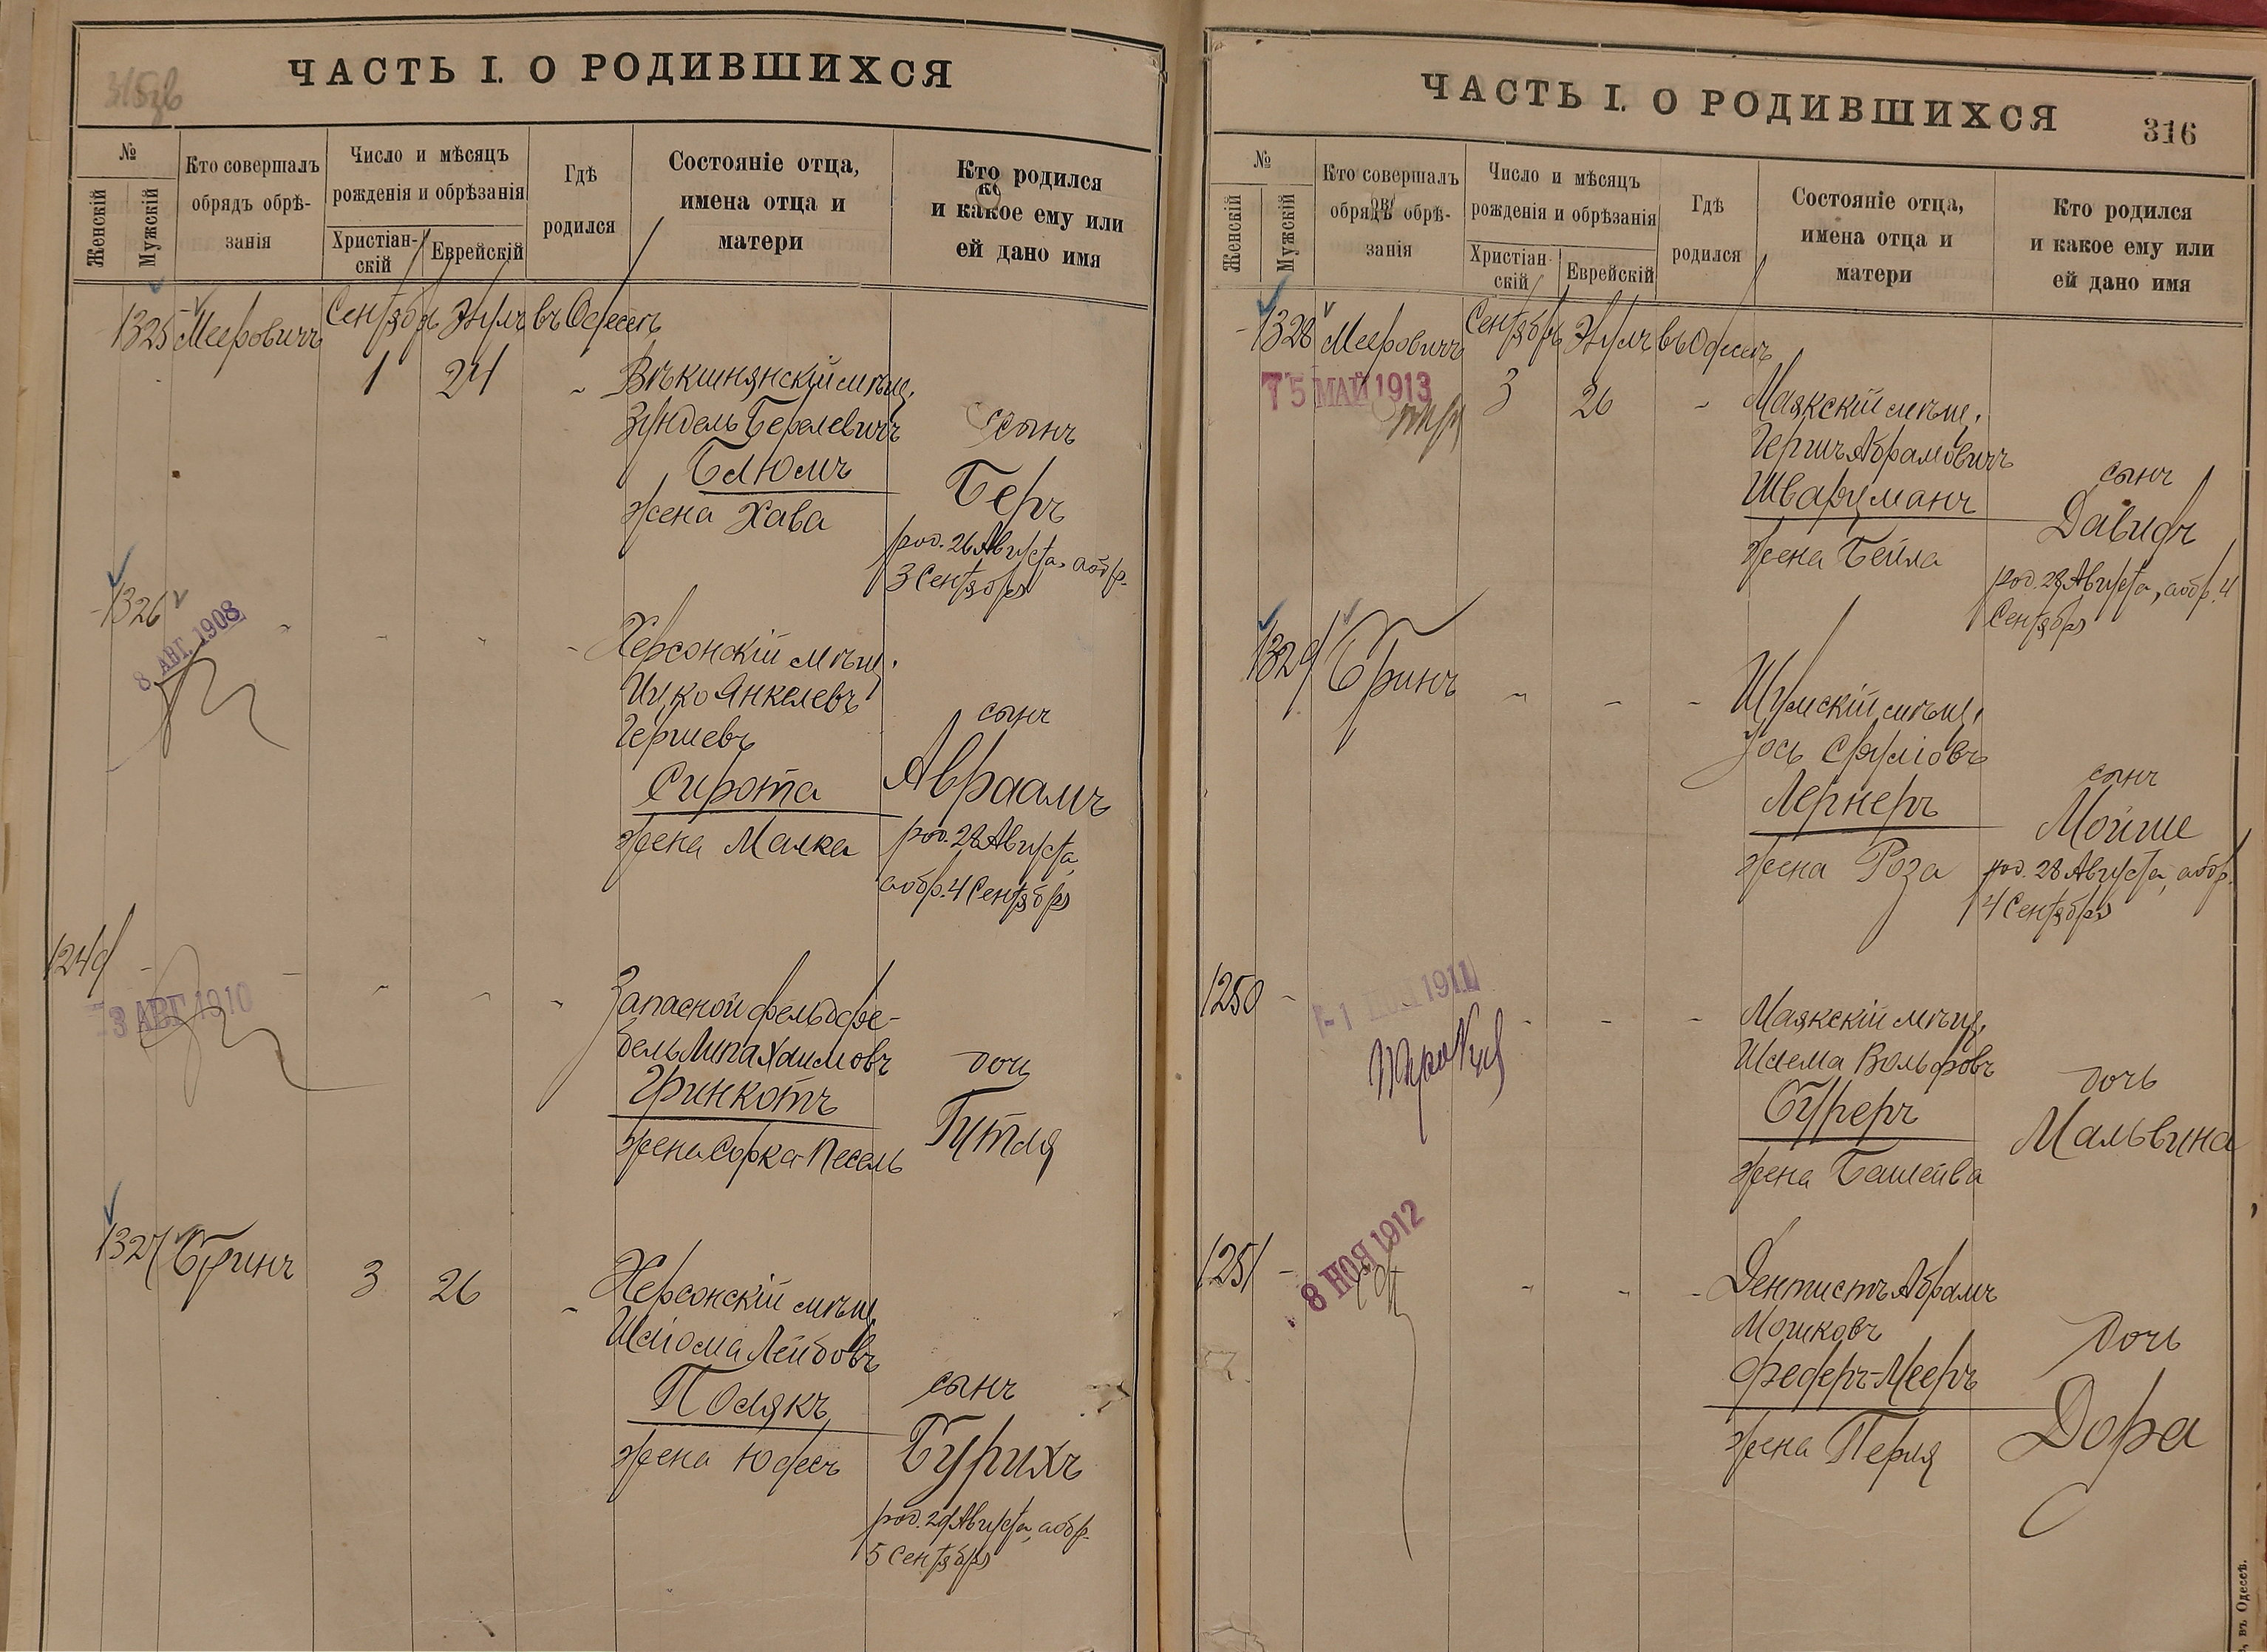 ЧАСТЬ I. О РОДИВШИХСЯ
№
Женскій
Мужскій
Кто совершалъ
обрядъ обрѣ-
занія
Число и мѣсяцъ
рожденія и обрѣзанія
Христіан-
скій
Еврейскій
Гдѣ
родился
Состояніе отца,
имена отца и
матери
Кто родился
и какое ему или
ей дано имя
1325 Мееровичъ Сентябрь Элулъ въ Одессѣ
1 24
Векшнянскій мѣщ.
Зундель Берелевичъ
Блюмъ
жена Хава
сынъ
Беръ
род. 26 Августа, а обр.
3 Сентября
1326
8 АВГ. 1908
Херсонскій мѣщ.
Ицко Янкелевъ
Гершевъ
Сирота
жена Малка
сынъ
Авраамъ
род. 28 Августа
а обр. 4 Сентября
1249
3 АВГ 1910
Запасной фельдфе-
бель Липа Хаимовъ
Гринкотъ
жена Сорка-Песель
дочь
Гутля
1327 Бринъ
3 26
Херсонскій мѣщ.
Шліома Лейбовъ
Полякъ
жена Юдесъ
сынъ
Бурихъ
род. 29 Августа, а обр.
5 Сентября
ЧАСТЬ I. О РОДИВШИХСЯ
316
№
Женскій
Мужскій
Кто совершалъ
обрядъ обрѣ-
занія
Число и мѣсяцъ
рожденія и обрѣзанія
Христіан-
скій
Еврейскій
Гдѣ
родился
Состояніе отца,
имена отца и
матери
Кто родился
и какое ему или
ей дано имя
1328 Мееровичъ Сентябрь Элулъ въ Одессѣ
5 МАЙ 1913
3 26
Маякскій мѣщ.
Гершъ Абрамовичъ
Шварцманъ
жена Бейла
сынъ
Давидъ
род. 28 Августа, а обр. 4
Сентября
1329 Бринъ
Шумскій мѣщ.
Іось Сруліовъ
Лернеръ
жена Роза
сынъ
Мойше
род. 28 Августа, а обр.
4 Сентября
1250
1911
Маякскій мѣщ.
Шлема Вольфовъ
Фуреръ
жена Башейва
дочь
Мальвина
1251
8 НОЯ 1912
Дентистъ Абрамъ
Мошковъ
Федеръ-Мееръ
жена Перля
дочь
Дора
въ Одессѣ.